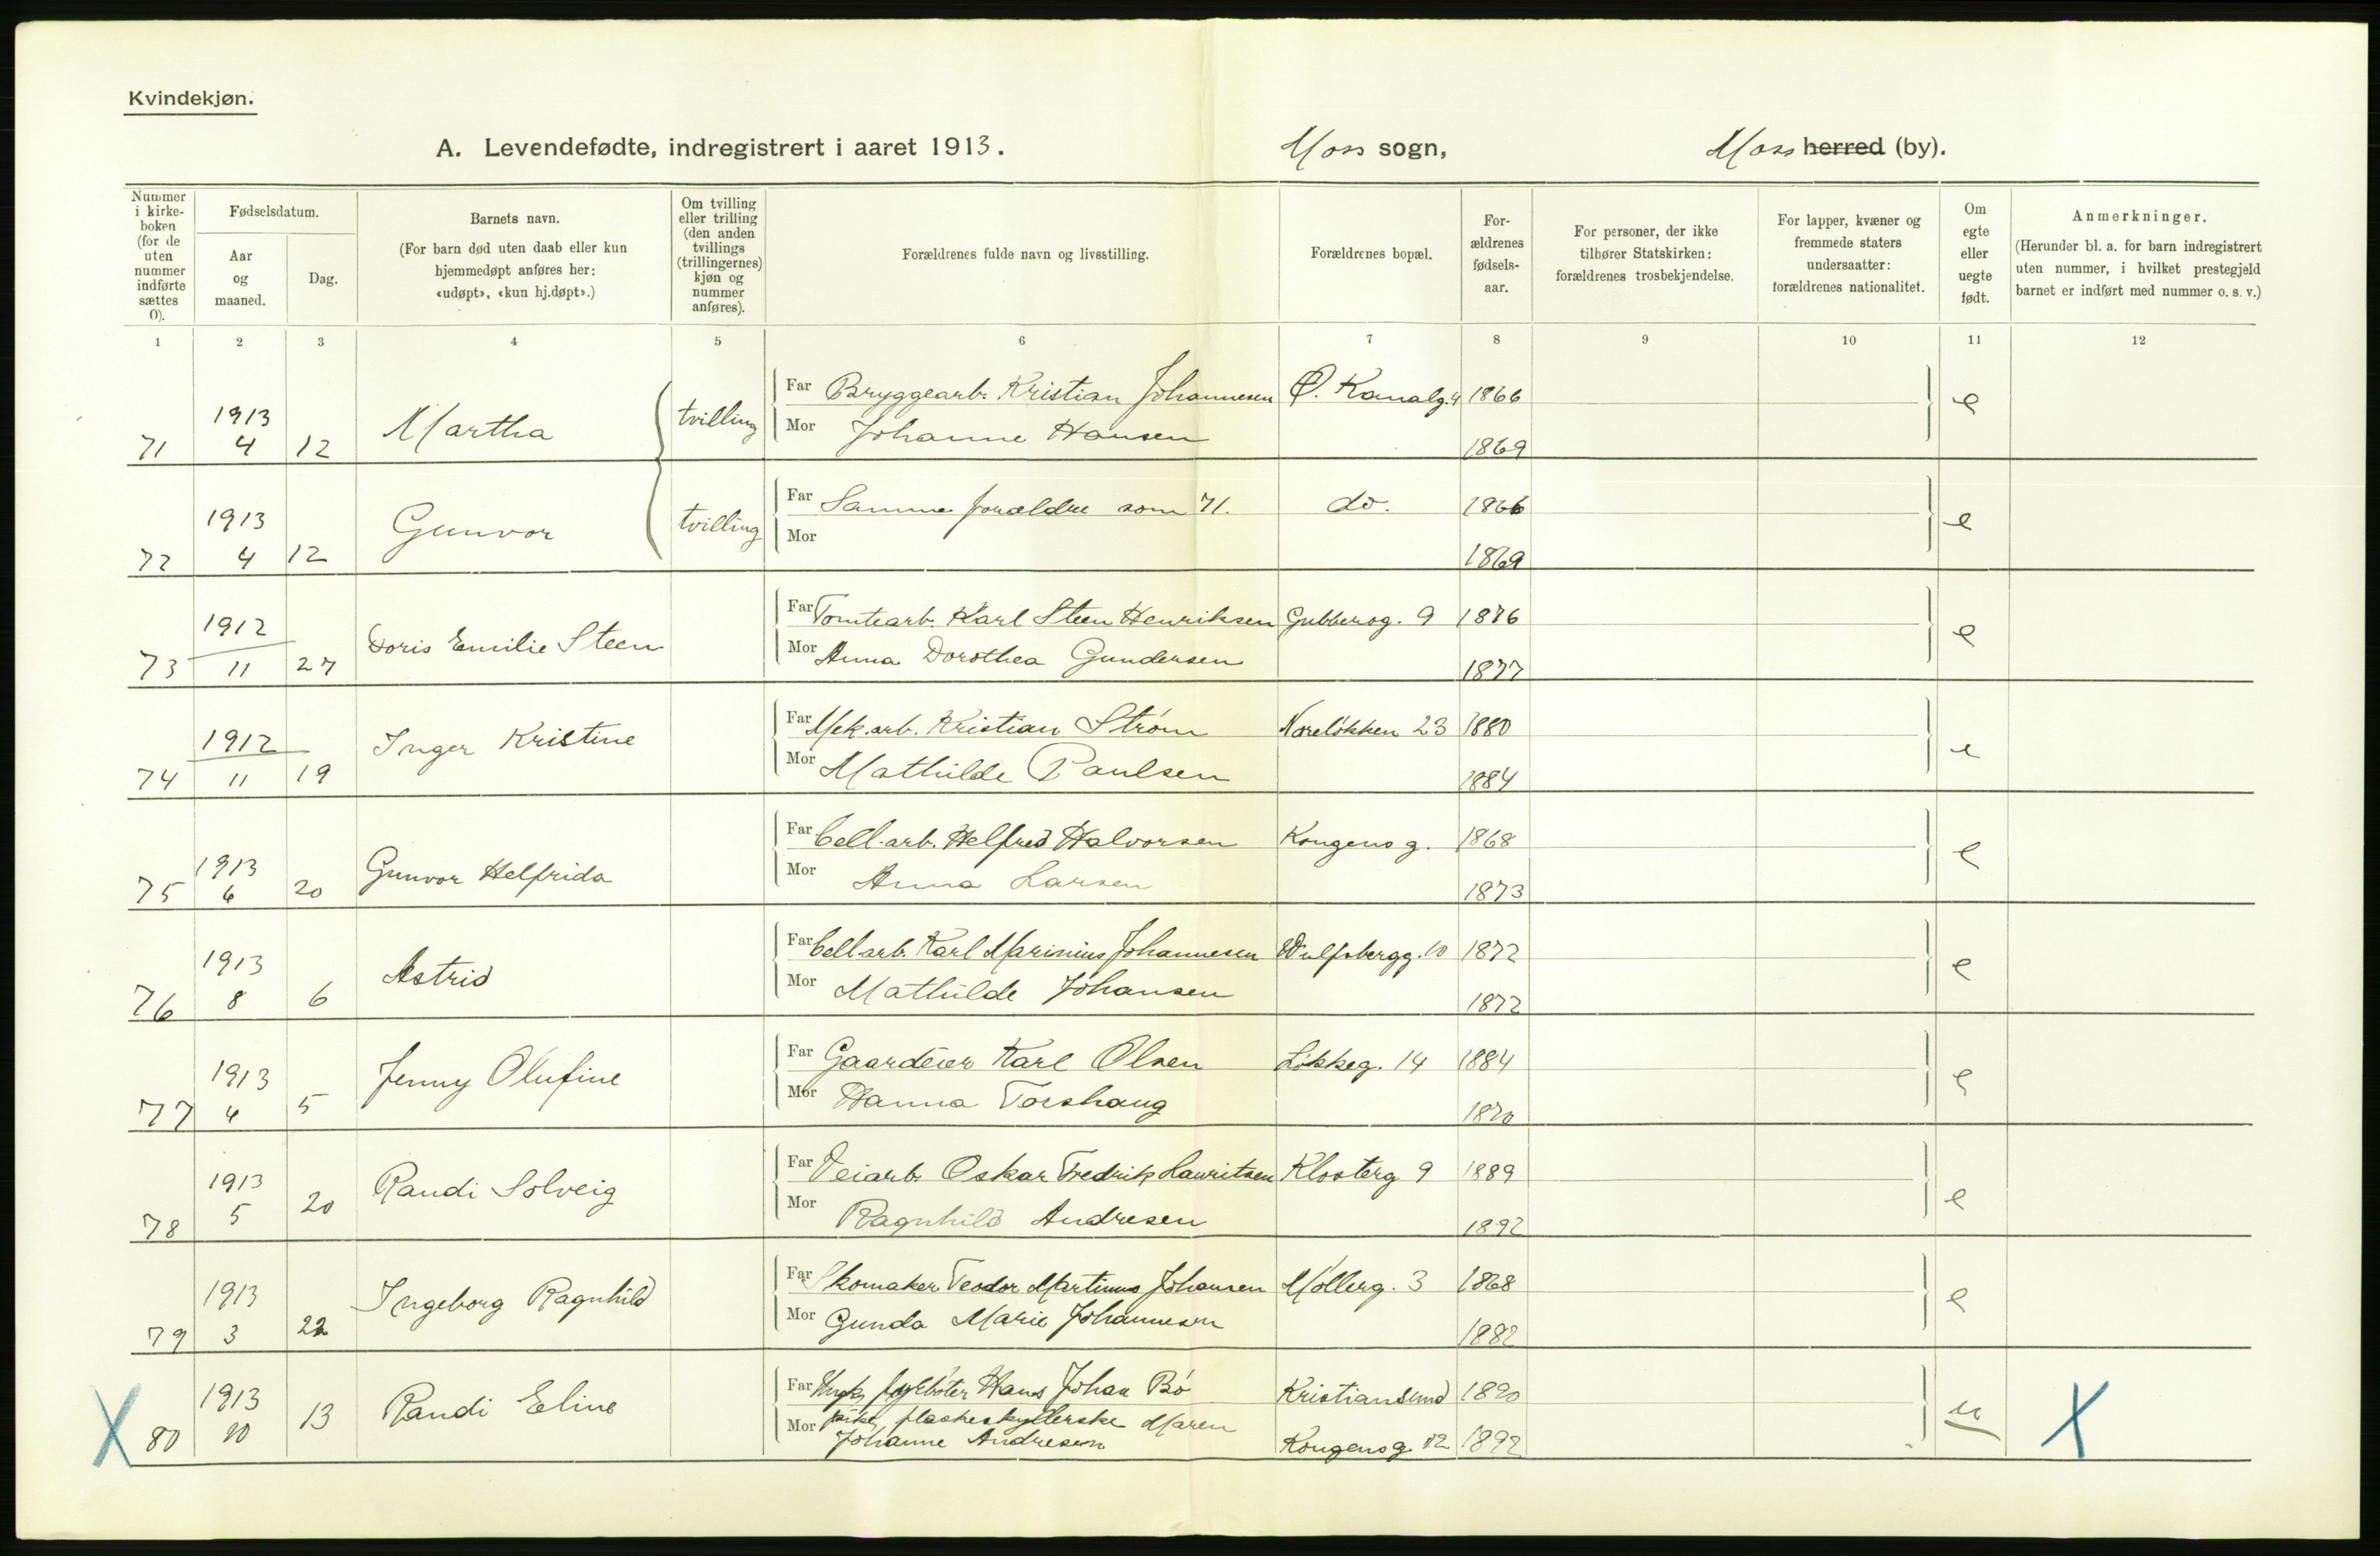 Kvindekjøn.
A. Levendefødte, indregistrert i aaret 1913. Moss sogn, Moss herred (by).
Nummer i kirke-boken (for de uten nummer indførte sættes 0).
Fødselsdatum.
Aar og maaned.
Dag.
Barnets navn.
(For barn død uten daab eller kun hjemmedøpt anføres her: «udøpt», «kun hj.døpt».)
Om tvilling eller trilling (den anden tvillings (trillingernes) kjøn og nummer anføres).
Forældrenes fulde navn og livsstilling.
Forældrenes bopæl.
For-ældrenes fødsels-aar.
For personer, der ikke tilhører Statskirken: forældrenes trosbekjendelse.
For lapper, kvæner og fremmede staters undersaatter: forældrenes nationalitet.
Om egte eller uegte født.
Anmerkninger.
(Herunder bl. a. for barn indregistrert uten nummer, i hvilket prestegjeld barnet er indført med nummer o. s. v.)
1 2 3 4 5 6 7 8 9 10 11 12
71 1913 4 12 Martha tvilling Far Bryggearb. Kristian Johannesen Ø. Kanalg. 4 1866 e
Mor Johanne Hansen 1869
72 1913 4 12 Gunvor tvilling Far Samme forældre som 71. do. 1866 e
Mor 1869
73 1912 11 27 Doris Emilie Steen Far Tomtearb. Karl Steen Henriksen Gubberog. 9 1876 e
Mor Anna Dorothea Gundersen 1877
74 1912 11 19 Inger Kristine Far Mek. arb. Kristian Strøm Noreløkken 23 1880 e
Mor Mathilde Paulsen 1884
75 1913 6 20 Gunvor Helfrida Far Cell. arb. Helfred Halvorsen Kongens g. 1868 e
Mor Anna Larsen 1873
76 1913 8 6 Astrid Far Cell. arb. Karl Marinius Johannesen Wulfsbergg. 10 1872 e
Mor Mathilde Johansen 1872
77 1913 4 5 Jenny Olufine Far Gaardeier Karl Olsen Løkkeg. 14 1884 e
Mor Hanna Torshaug 1870
78 1913 5 20 Randi Solveig Far Veiarb. Oskar Fredrik Lauritsen Klosterg 9 1889 e
Mor Ragnhild Andresen 1892
79 1913 3 22 Ingeborg Ragnhild Far Skomaker Teodor Martinus Johansen Møllerg. 3 1868 e
Mor Gunda Marie Johannesen 1882
X 80 1913 10 13 Randi Eline Far Ungk. fyrbøter Hans Johan Bø Kristiansund 1890 u X
Mor pike, flaskeskyllerske Maren
Johanne Andresen Kongensg. 12 1892